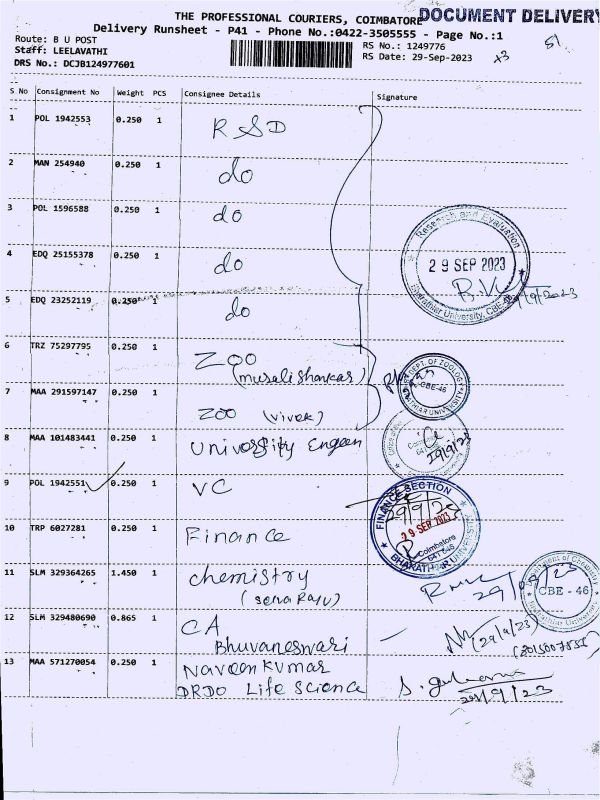 THE PROFESSIONAL COURIERS, COIMBATORE DOCUMENT DELIVERY
Delivery Runsheet - P41 - Phone No.:0422-3505555 - Page No.:1
Route: B U POST
Staff: LEELAVATHI
DRS No.: DCJB124977601
RS No.: 1249776
RS Date: 29-Sep-2023
S No Consignment No Weight PCS Consignee Details Signature
1 POL 1942553 0.250 1 RSD
2 MAN 254940 0.250 1 do
3 POL 1596588 0.250 1 do
4 EDQ 25155378 0.250 1 do
5 EDQ 23252119 0.250 1 do
Research and Evaluation
29 SEP 2023
Bharathiar University, CBE-46
29/9/2023
6 TRZ 75297795 0.250 1 Zoo
(muralishankar)
DEPT. OF ZOOLOGY
CBE-46
BHARATHIAR UNIVERSITY
7 MAA 291597147 0.250 1 Zoo (vivek)
8 MAA 101483441 0.250 1 University Engeen
29/9/23
9 POL 1942551 0.250 1 VC
29/9/23
10 TRP 6027281 0.250 1 Finance
FINANCE SECTION
29 SEP 2023
Coimbatore
641 046
BHARATHIAR UNIVERSITY
11 SLM 329364265 1.450 1 chemistry
(senaRaju)
29/09/23
Department of Chemistry
CBE - 46
Bharathiar University
12 SLM 329480690 0.865 1 CA
Bhuvaneswari
(29/9/23)
13 MAA 571270054 0.250 1 Naveenkumar
DRDO Life science
29/9/23